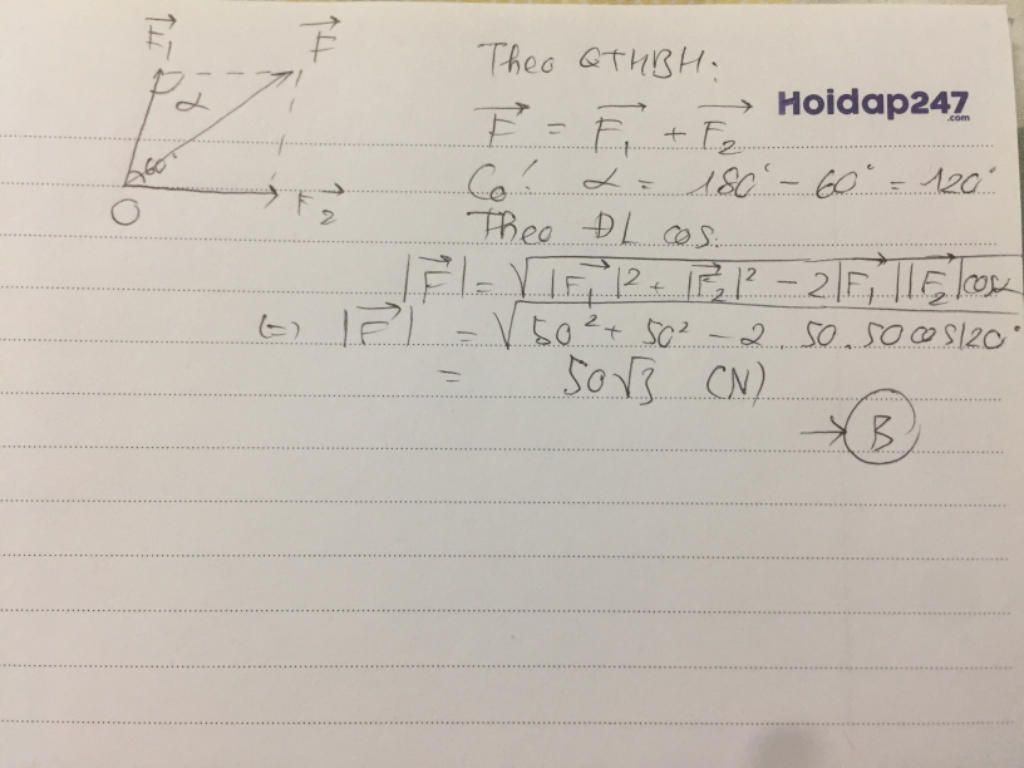 F₁ F
α
60°
O F₂
Theo QTHBH:
Hoidap247
.com
F = F₁ + F₂
Có: α = 180° - 60° = 120°
Theo ĐL cos.
|F| = √|F₁|² + |F₂|² - 2|F₁||F₂|cosα
(=) |F| = √50² + 50² - 2. 50. 50 cos120°
= 50√3 (N)
→ B